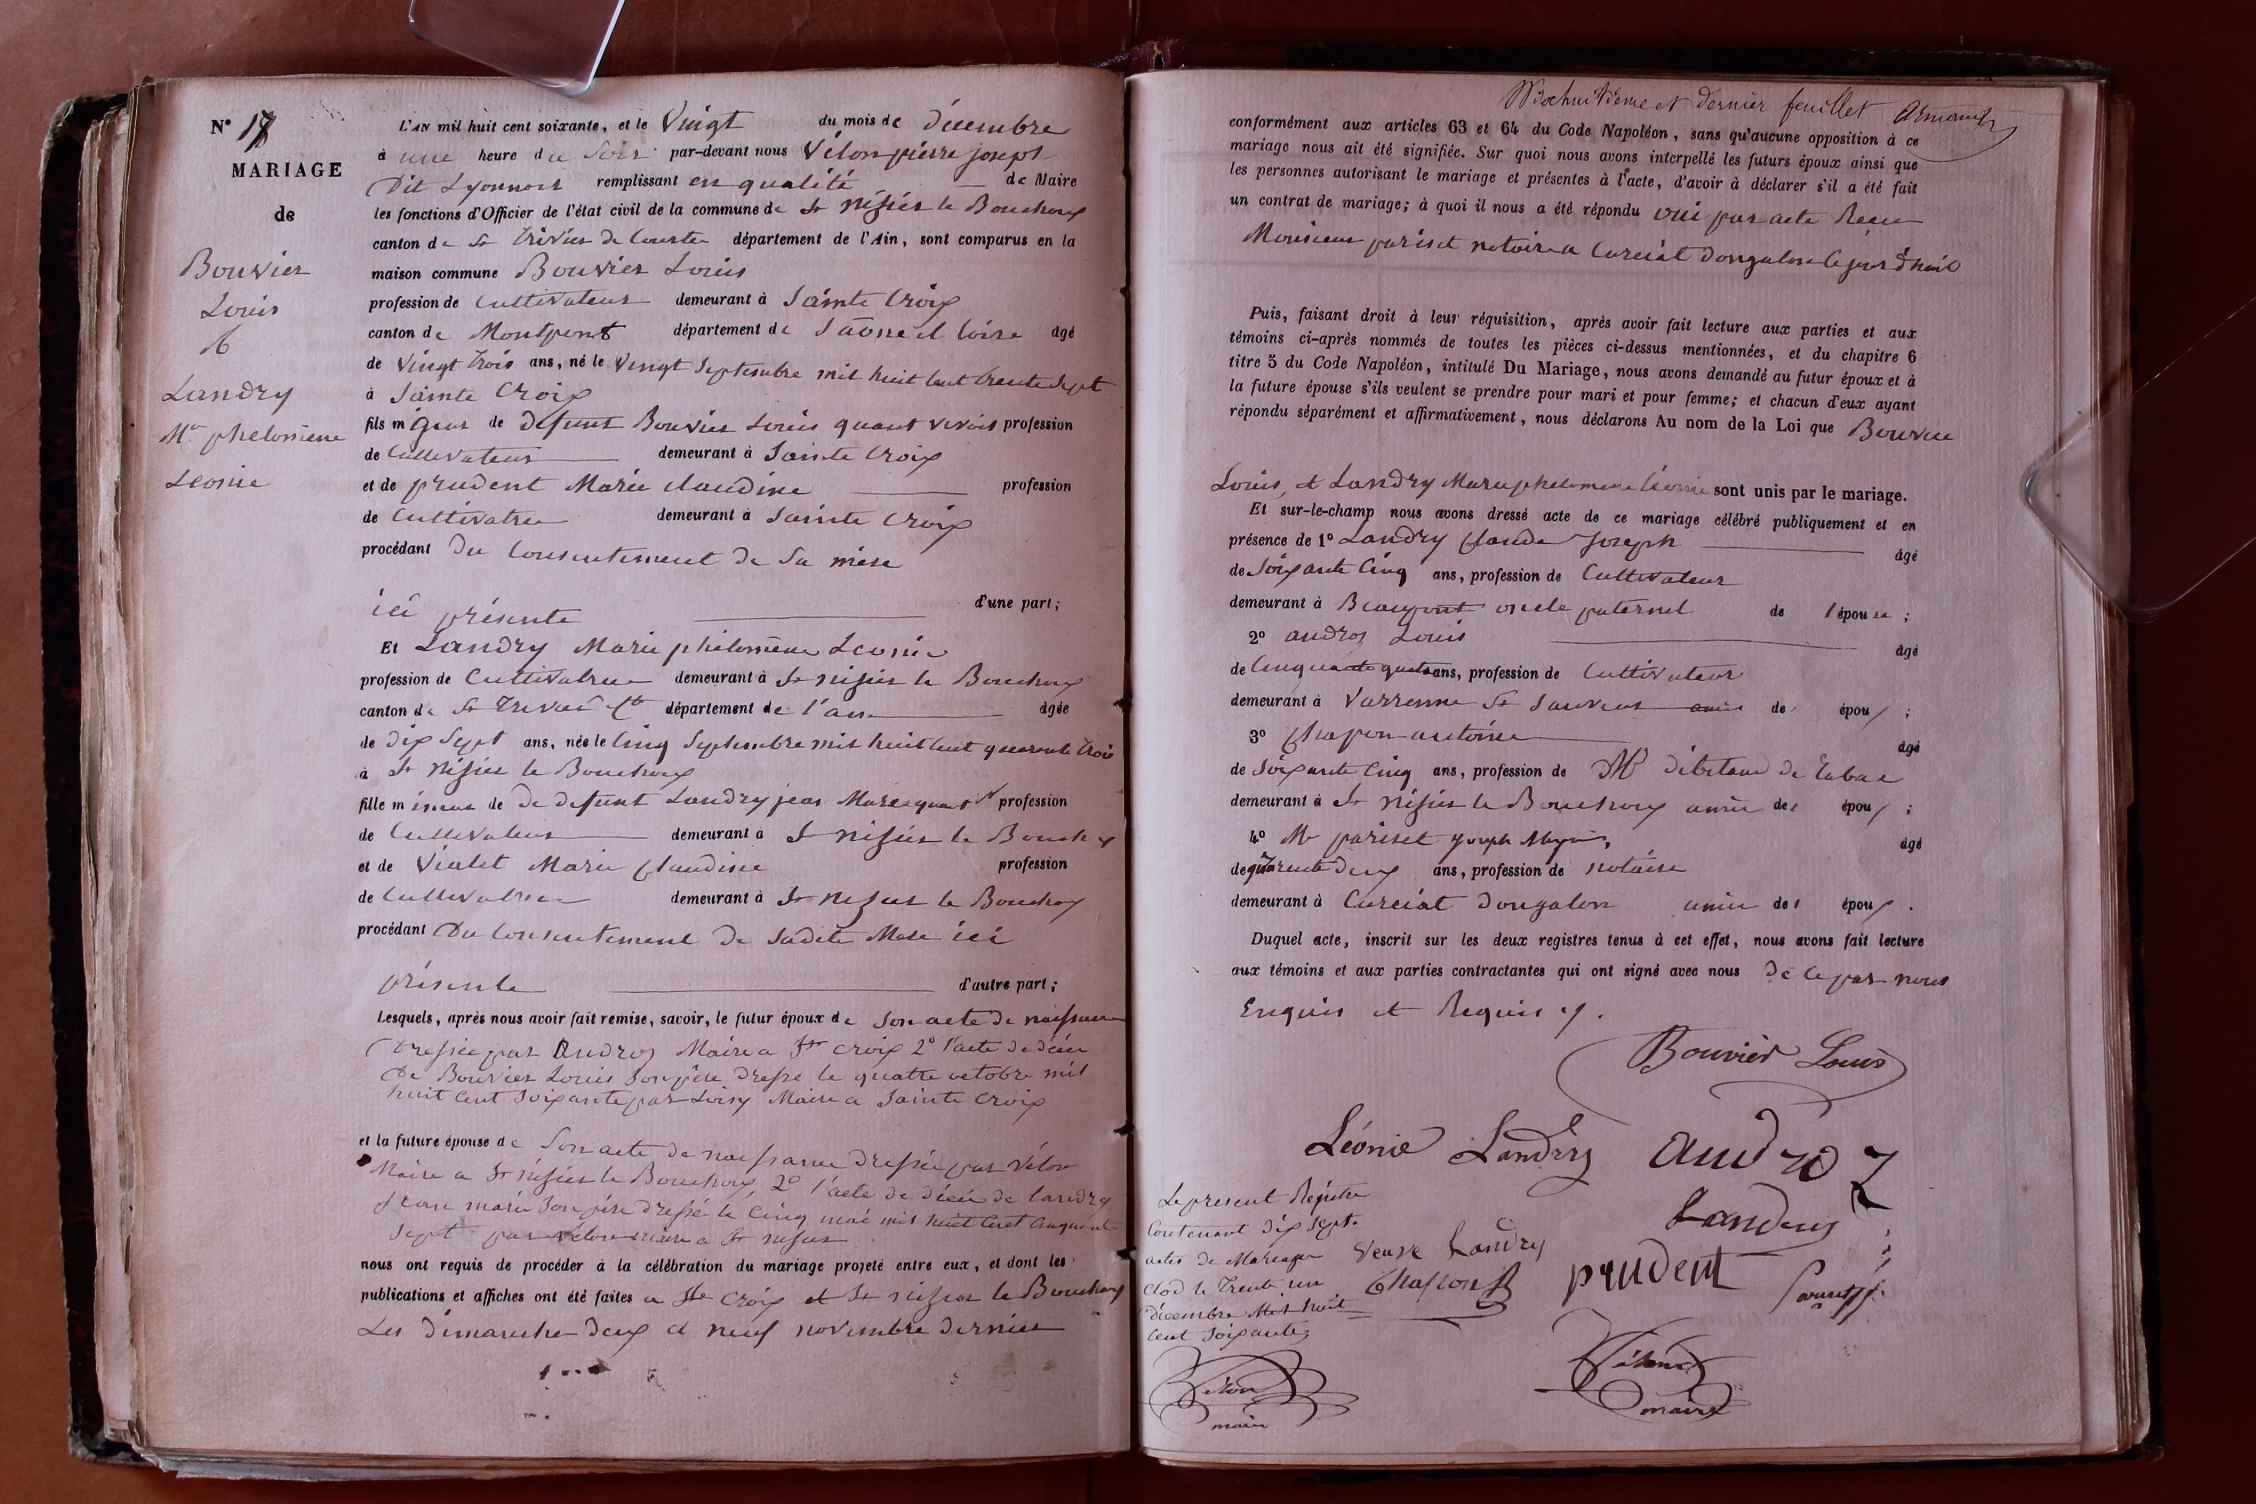 N° 17
MARIAGE
de
Bouvier
Louis
&
Landry
Mie phelomene
Leonie
L'AN mil huit cent soixante, et le Vingt du mois de décembre
à une heure du Soir par-devant nous Vélon pierre joseph
Dit Lyonnois remplissant en qualité de Maire
les fonctions d'Officier de l'état civil de la commune de St Nisier le Bouchoux
canton de St Trivier de Courtes département de l'Ain, sont comparus en la
maison commune Bouvier Louis
profession de Cultivateur demeurant à Sainte Croix
canton de Montpont département de Saône et loire âgé
de Vingt trois ans, né le Vingt Septembre mil huit cent trente sept
à Sainte Croix
fils majeur de défunt Bouvier Louis quant vivois profession
de Cultivateur demeurant à Sainte Croix
et de prudent Marie claudine profession
de Cultivatrice demeurant à Sainte Croix
procédant Du Consentement de Sa mère
ici présente d'une part;
Et Landry Marie philomène Leonie
profession de Cultivatrice demeurant à St nisier le Bouchoux
canton de St Trivier Ctes département de l'ain âgée
de dix Sept ans, née le Cinq Septembre mil huit cent quarante trois
à St Nisier le Bouchoux
fille mineure de De défunt Landry jean Marie quant V profession
de Cultivateur demeurant à St nisier le Bouchoux
et de Vialet Marie Claudine profession
de Cultivatrice demeurant à St nisier le Bouchoux
procédant Du Consentement De Sadite Mere ici
présente d'autre part;
Lesquels, après nous avoir fait remise, savoir, le futur époux de Son acte de naissance
Dressée par Andros Maire a Ste Croix 2° l'acte de décés
De Bouvier Louis Son père Dressé le quatre octobre mil
huit Cent Soixante par Loisy Maire a Sainte Croix
et la future épouse de Son acte de naissance Dressée par Vélon
Maire a St nisier le Bouchoux 2° l'acte de décés de Landry
Jean marie Son père Dressé le Cinq mai mil huit Cent Cinquante
Sept par Vélon maire a St nisier
nous ont requis de procéder à la célébration du mariage projeté entre eux, et dont les
publications et affiches ont été faites a Ste Croix et St nisier le Bouchoux
Les dimanche deux et neuf novembre dernier
Dixhuitieme et Dernier feuillet
conformément aux articles 63 et 64 du Code Napoléon, sans qu'aucune opposition à ce
mariage nous ait été signifiée. Sur quoi nous avons interpellé les futurs époux ainsi que
les personnes autorisant le mariage et présentes à l'acte, d'avoir à déclarer s'il a été fait
un contrat de mariage; à quoi il nous a été répondu oui par acte Recu
Monsieur pariset notaire a Curciat Dongalon Ce jour d'huit
Puis, faisant droit à leur réquisition, après avoir fait lecture aux parties et aux
témoins ci-après nommés de toutes les pièces ci-dessus mentionnées, et du chapitre 6
titre 5 du Code Napoléon, intitulé Du Mariage, nous avons demandé au futur époux et à
la future épouse s'ils veulent se prendre pour mari et pour femme; et chacun d'eux ayant
répondu séparément et affirmativement, nous déclarons Au nom de la Loi que Bouvier
Louis, et Landry Marie phelomene Léonie sont unis par le mariage.
Et sur-le-champ nous avons dressé acte de ce mariage célébré publiquement et en
présence de 1° Landry Claude Joseph âgé
de Soixante Cinq ans, profession de Cultivateur
demeurant à Beaupont oncle paternel de l'épouse;
2° andros Louis âgé
de Cinquante quatre ans, profession de Cultivateur
demeurant à Varrenne St Sauveur amis des époux;
3° Chapon antoine âgé
de Soixante Cinq ans, profession de Md débitant de Tabac
demeurant à St Nisier le Bouchoux amis des époux;
4° Mr pariset joseph âgé
de quarente Deux ans, profession de notaire
demeurant à Curciat Dongalon amis des époux.
Duquel acte, inscrit sur les deux registres tenus à cet effet, nous avons fait lecture
aux témoins et aux parties contractantes qui ont signé avec nous De Ce par nous
Enquis et Requis
Bouvier Louis
Léonie Landry androz
Landry
Veuve Landry
Chapon prudent
Vélon
maire
Le present Registre
Contenant dix Sept
actes de Mariages
Clos le Trente un
décembre Mil huit
Cent Soixante
Vélon
maire